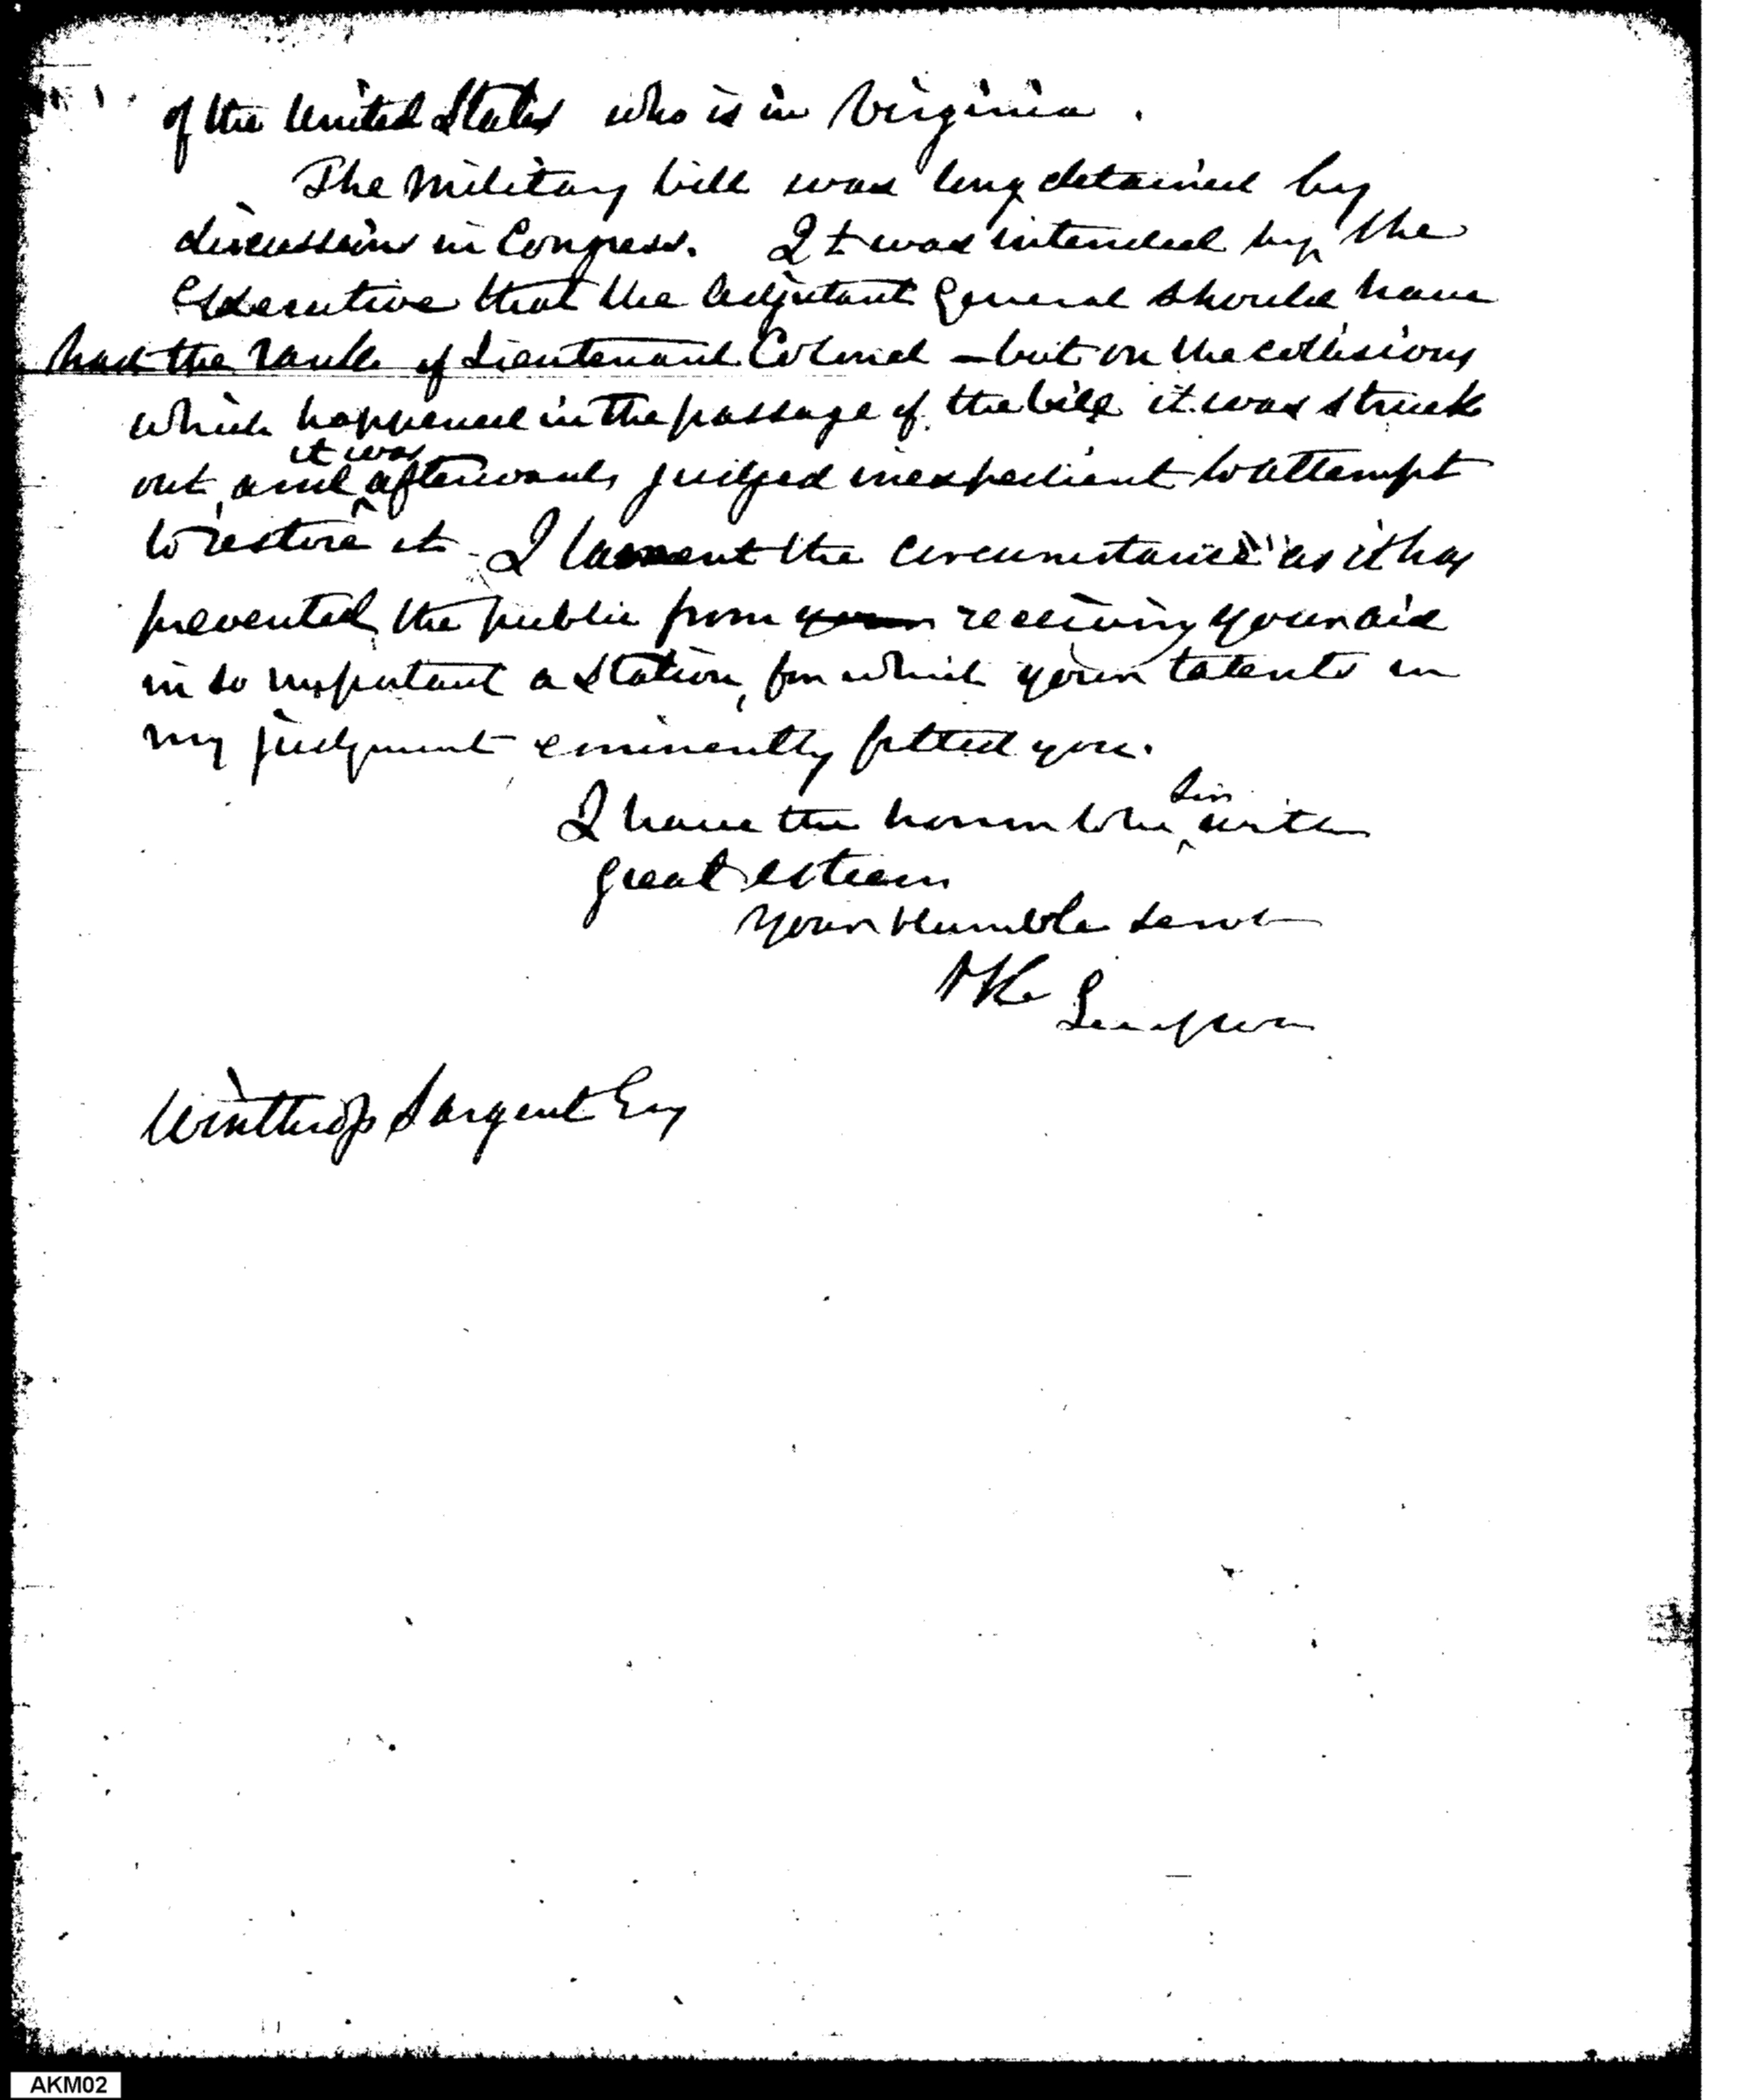 of the United States who is in Virginia.
The Military bill was long detained by
discussions in Congress. It was intended by the
Executive that the Adjutant General should have
had the rank of Lieutenant Colonel — but on the collisions
which happened in the passage of the bill it was struck
out, and it was afterwards judged inexpedient to attempt
to restore it. I lament the circumstance as it has
prevented the public from your receiving your aid
in so important a Station, for which your talents in
my judgment eminently fitted you.
I have the honor to be Sir with
great esteem
Your Humble Servt
HK
Winthrop Sargent Esq
AKM02